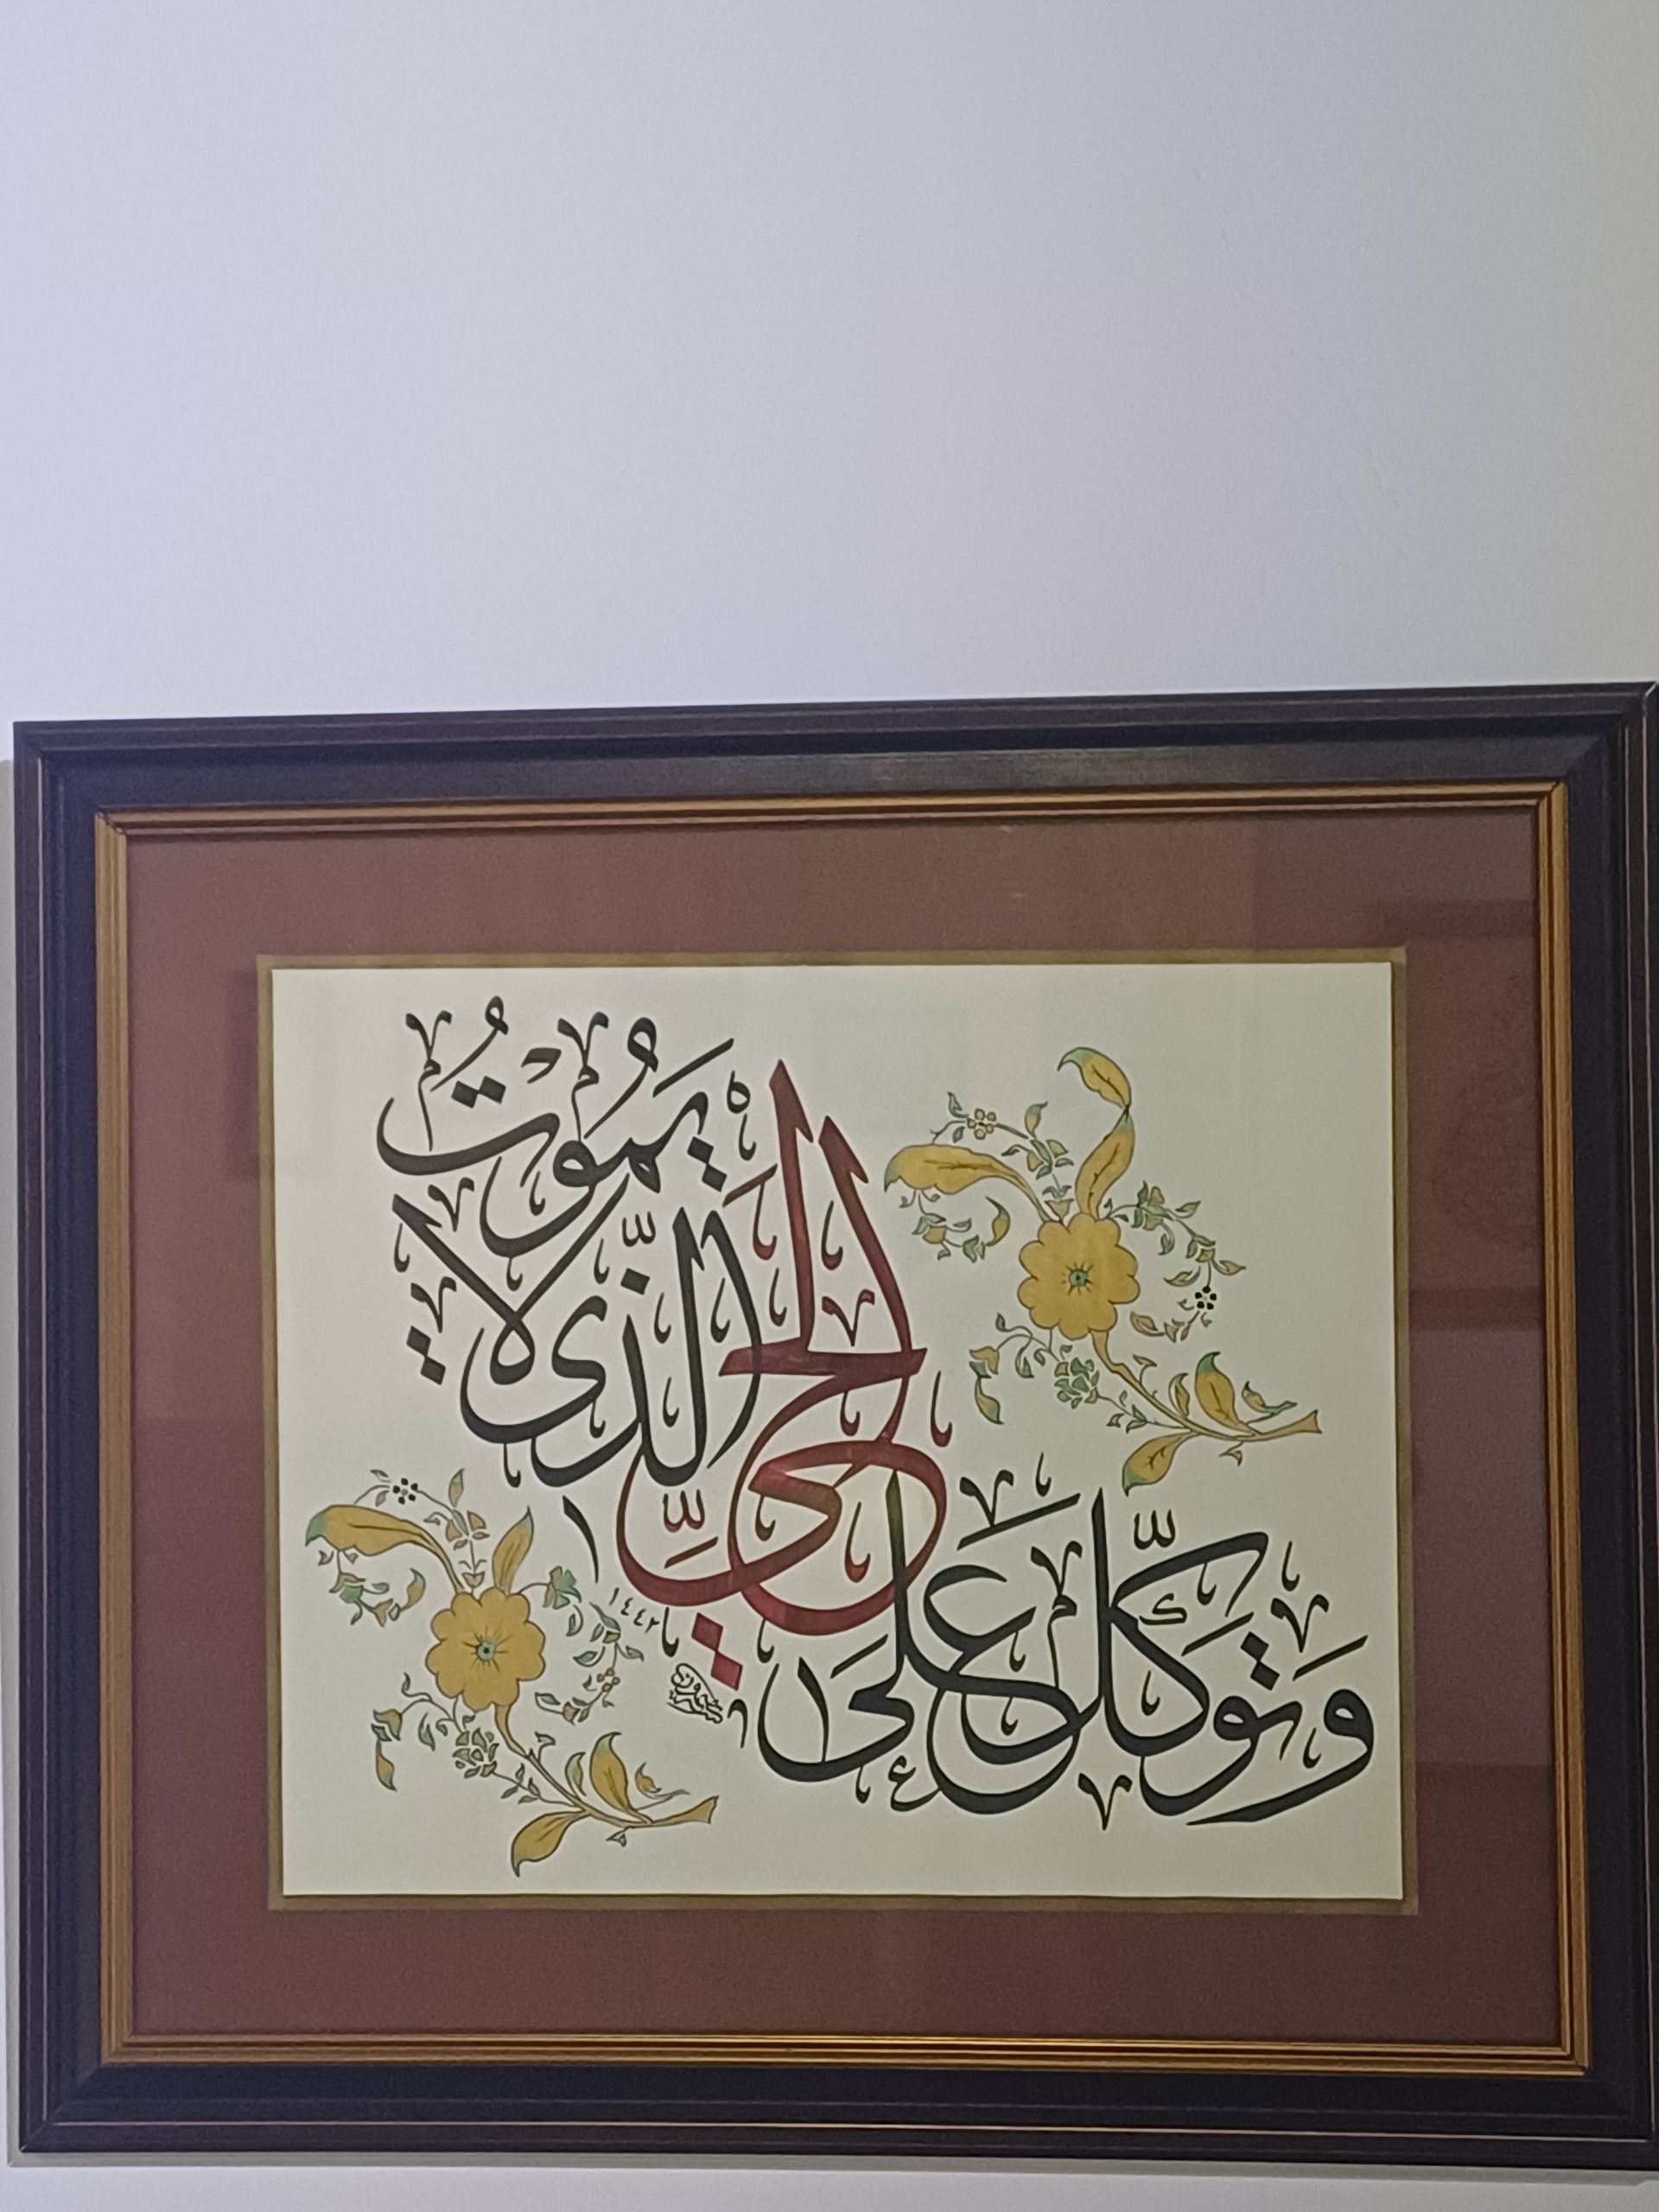 وَتَوَكَّلْ عَلَى
الْحَيِّ
الَّذِي لَا
يَمُوتُ
١٤٤٢